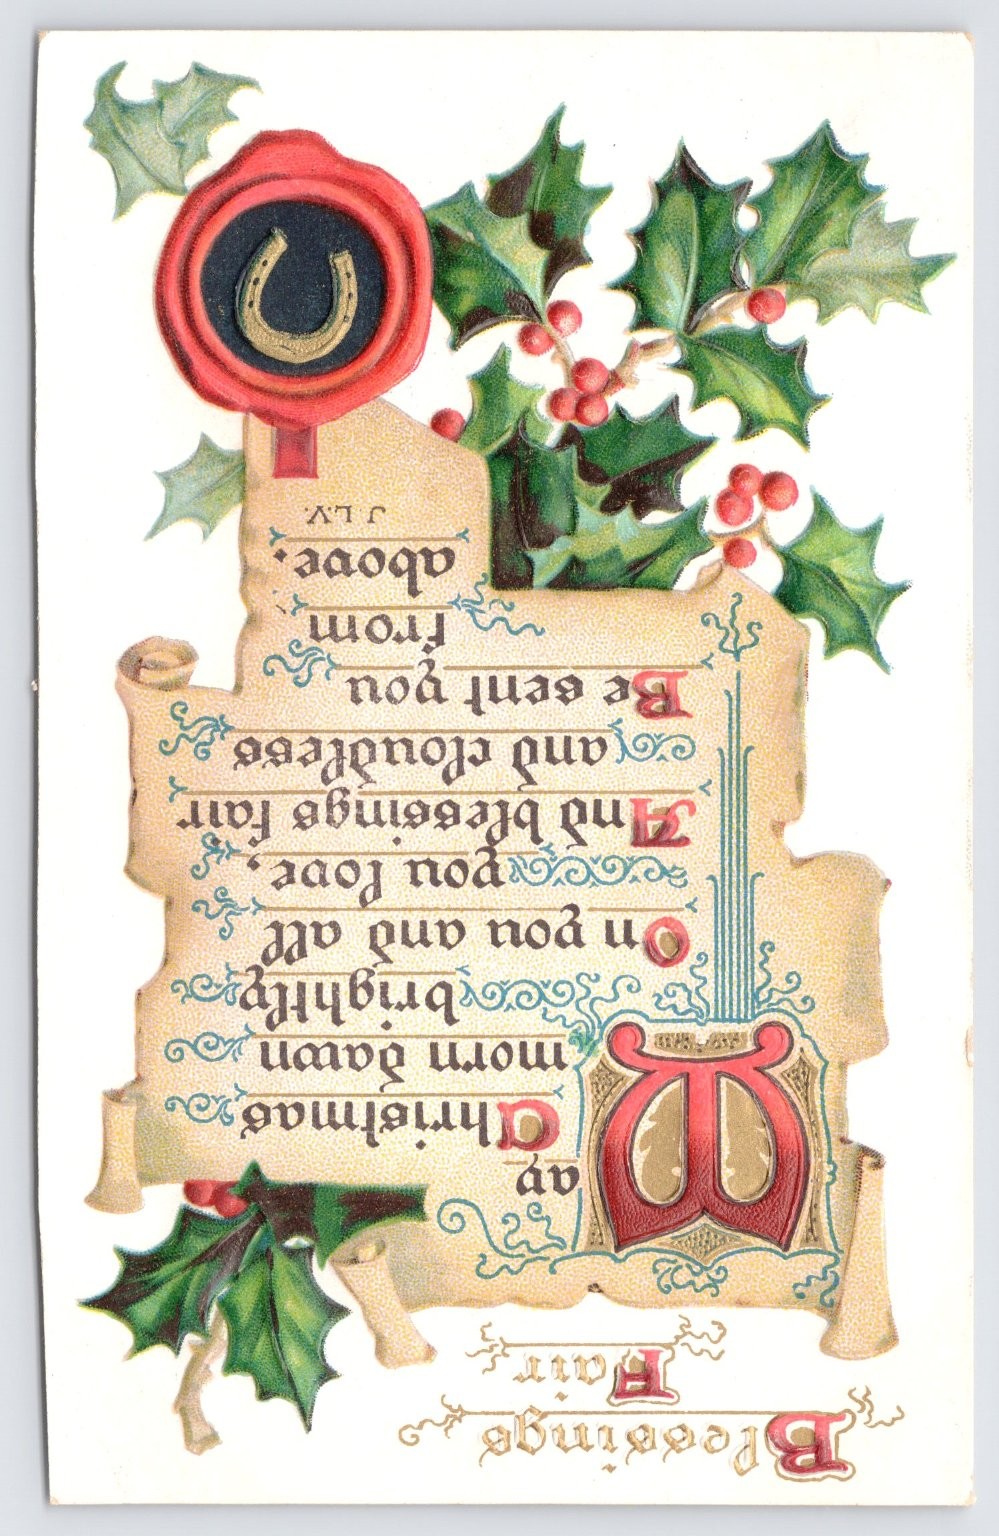 Blessings
Fair
May
Christmas
morn dawn
brightly
On you and all
you love,
And blessings fair
and cloudless
Be sent you
from
above.
J.L.V.